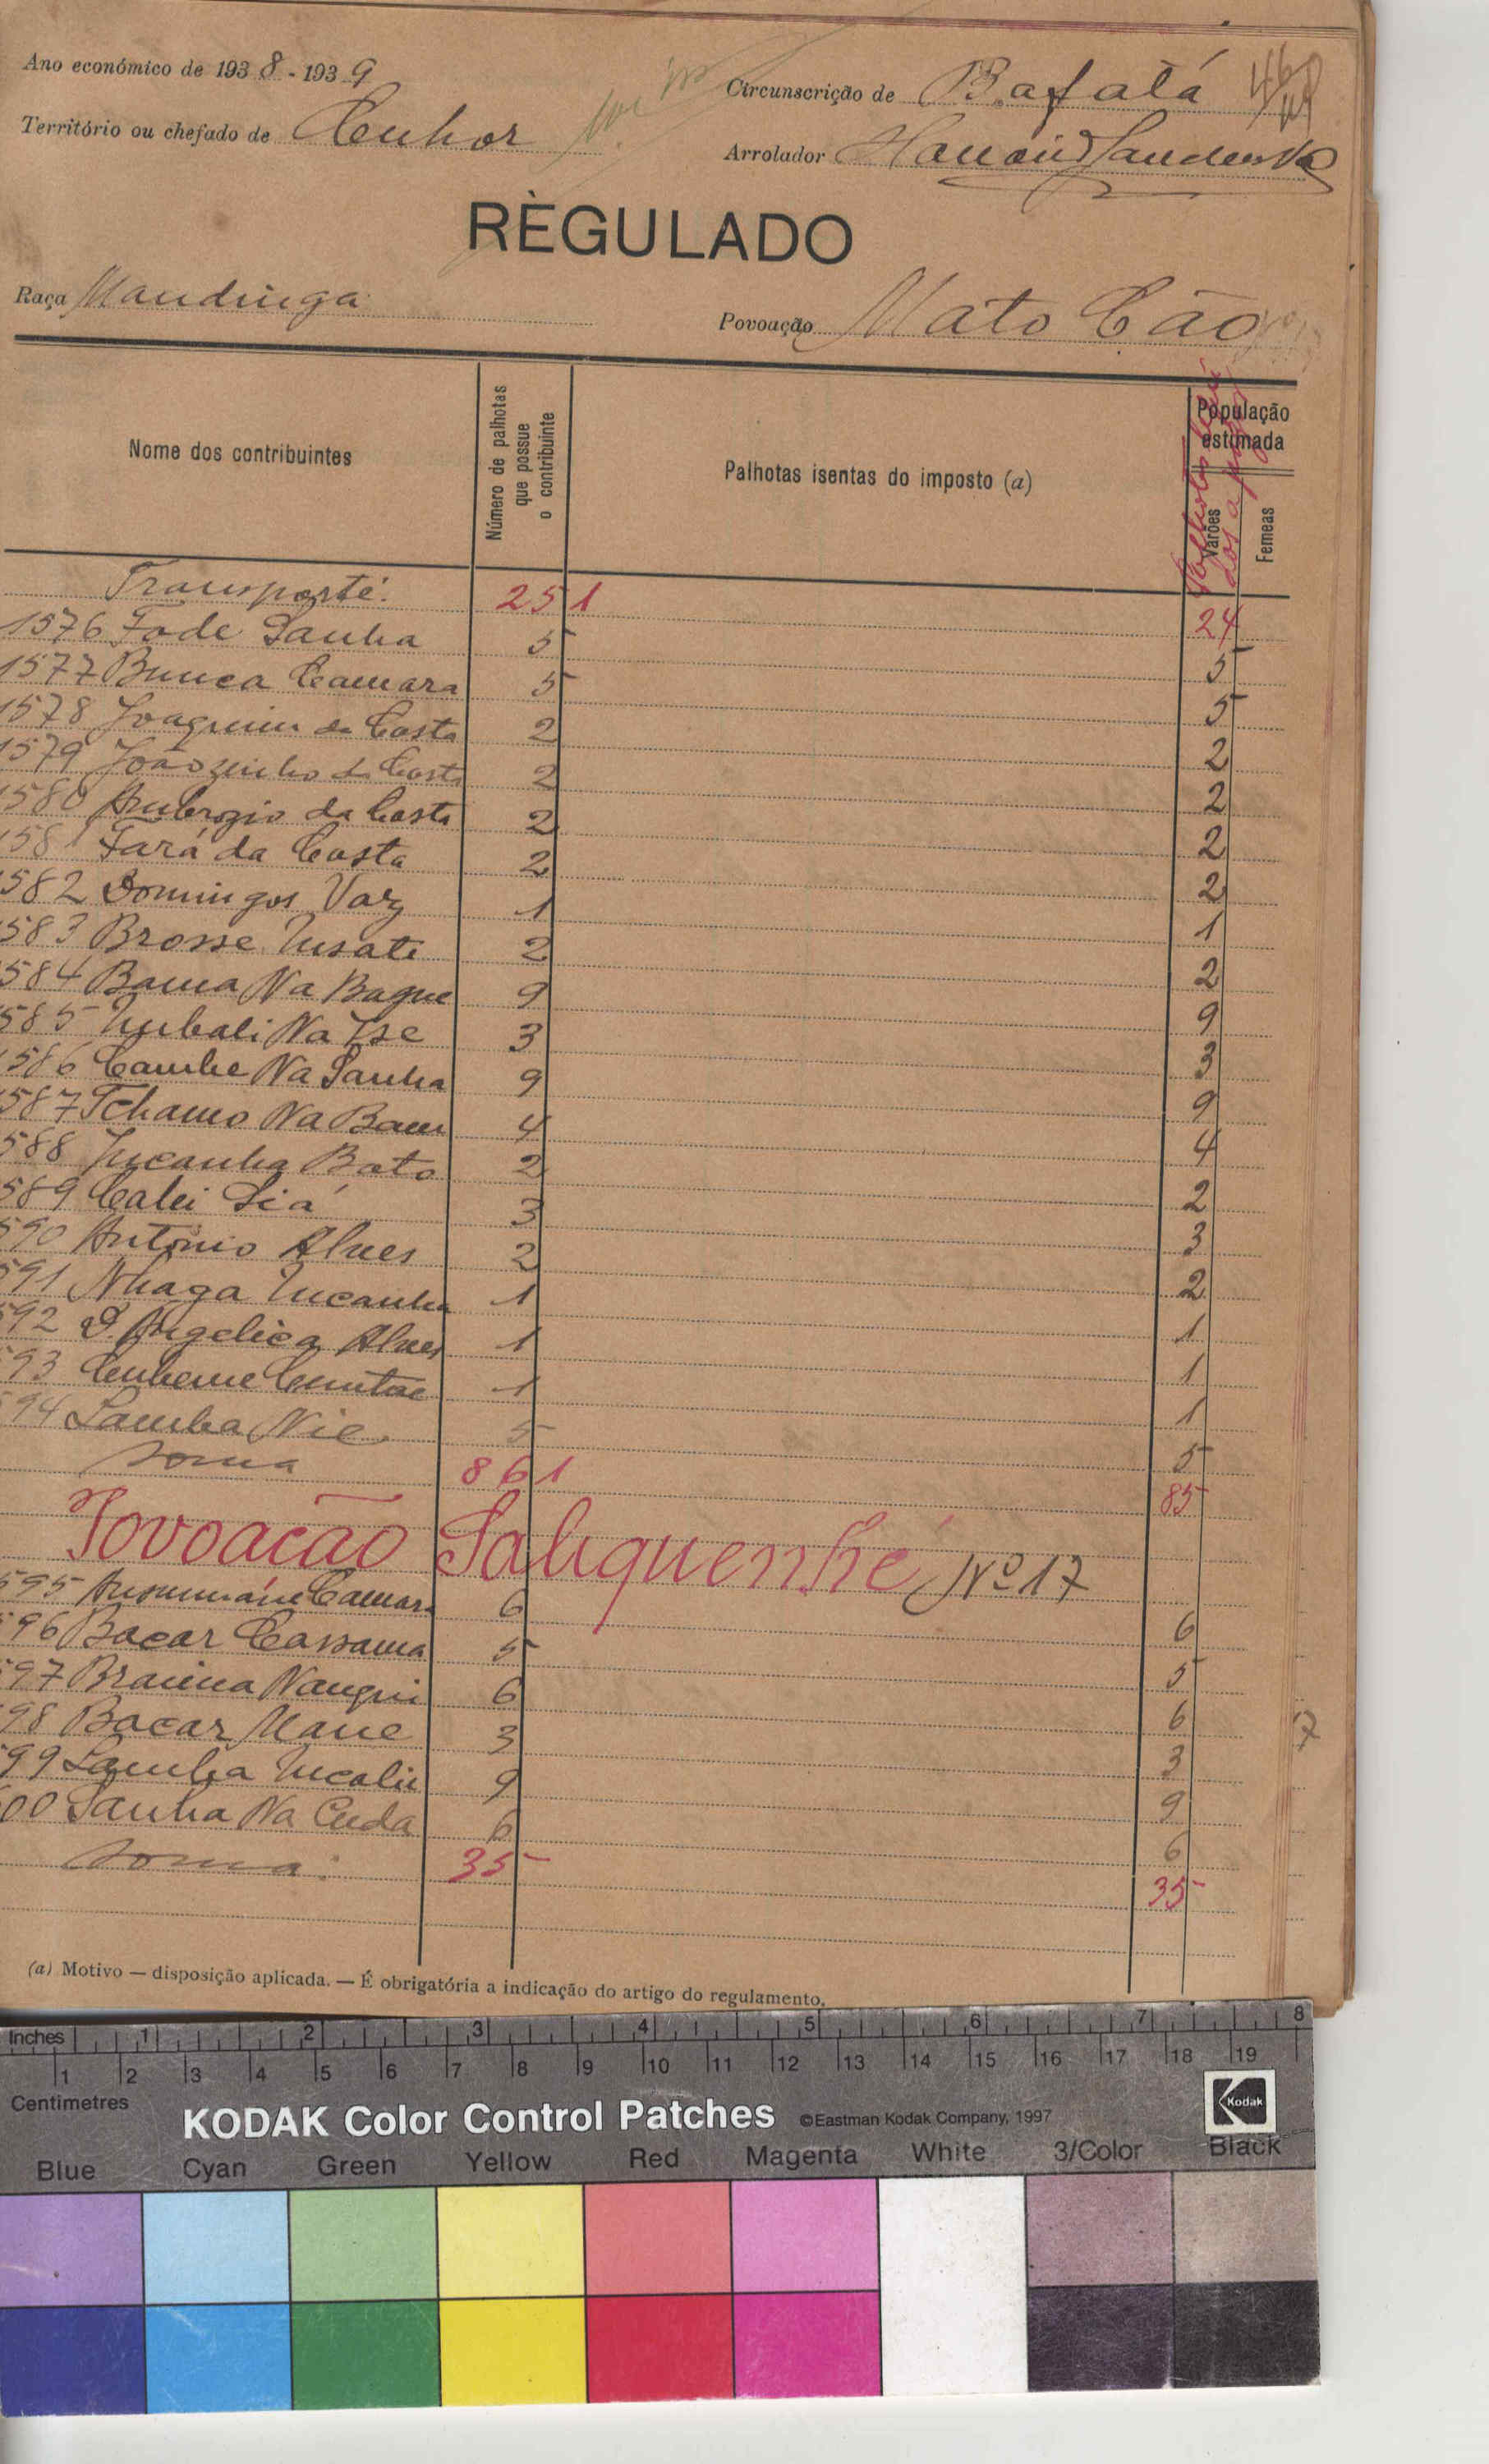 Ano económico de 1938-1939
Circunscrição de Bafatá
Território ou chefado de Cuhor
Arrolador
RÈGULADO
Raça Mandinga
Povoação Mato Cão
Nome dos contribuintes
Número de palhotas que possue o contribuinte
Palhotas isentas do imposto (a)
População estimada
Varões
Femeas
Transporte: 251 24
1576 Fode Sanha 5 5
1577 Bunca Camara 5 5
1578 Joaquim da Costa 2 2
1579 Joãozinho da Costa 2 2
1580 Ambrozio da Costa 2 2
1581 Fará da Costa 2 2
582 Domingos Vaz 1 1
583 Brosse 2 2
584 Bama Na Bague 9 9
585 Na Tse 3 3
586 Cambe Na Sanha 9 9
587 Tchamo Na Bam 4 4
588 Bato 2 2
589 Calei Siá 3 3
590 António Alves 2 2
591 Nhaga 1 1
592 D. Angelica Alves 1 1
593 1 1
594 Samba Nie 5 5
Soma 861 85
Povoacão Saliquenhé Nº 17
595 Camara 6 6
596 Bacar Cassama 5 5
597 Braima Nanqui 6 6
598 Bacar Mane 3 3
599 Samba 9 9
600 Sanha Na Cuda 6 6
Soma: 35 35
7
(a) Motivo — disposição aplicada. — É obrigatória a indicação do artigo do regulamento.
Inches 1 2 3 4 5 6 7 8
1 2 3 4 5 6 7 8 9 10 11 12 13 14 15 16 17 18 19
Centimetres
KODAK Color Control Patches ©Eastman Kodak Company, 1997 Kodak
Blue Cyan Green Yellow Red Magenta White 3/Color Black